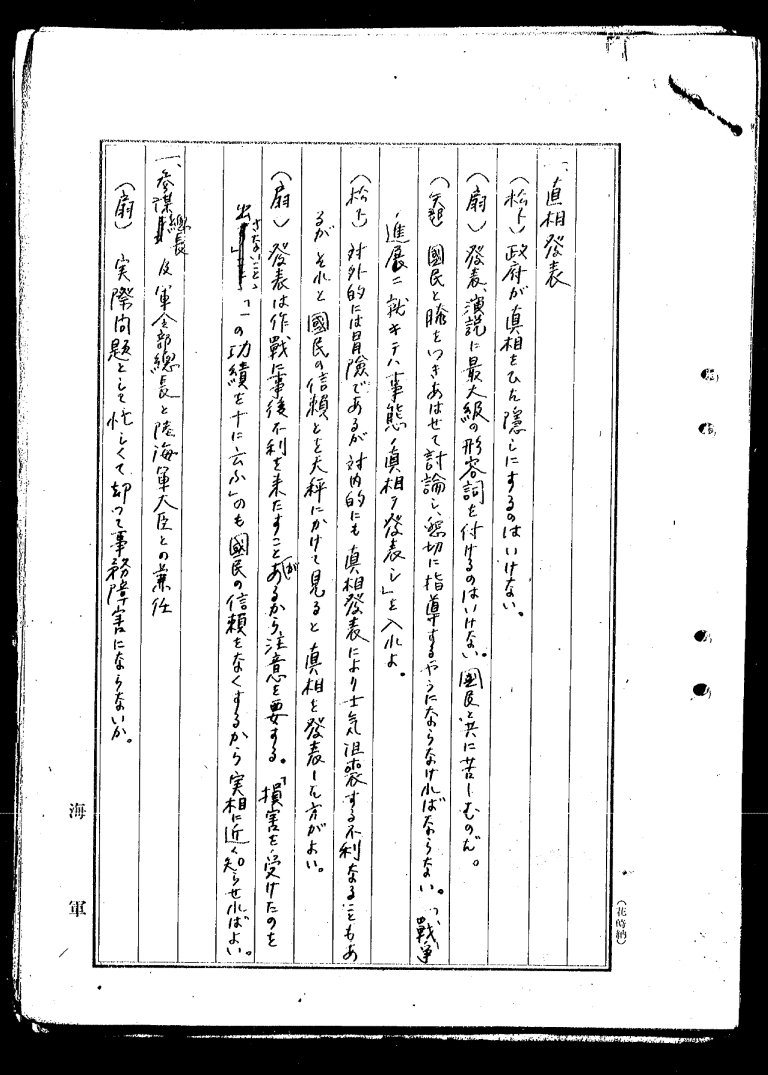 一、真相發表
(松下)政府が真相をひた隱しにするのはいけない。
(扇)發表、演説に最大級の形容詞を付けるのはいけない。國民と共に苦しむのだ。
(矢部)國民と膝をつきあはせて討論し、懇切に指導するやうにならなければならない。「、戰爭
ノ進展ニ就キテハ事態ノ真相ヲ發表シ」を入れよ。
(松下)対外的には冒險であるが対内的にも真相發表により士気沮喪する不利なることもあ
るがそれと國民の信頼とを天秤にかけて見ると真相を發表した方がよい。
(扇)發表は作戰に事後不利を来たすことがあるから注意を要する。「損害を受けたのを
出さないこと」、「一の功績を十に云ふ」のも國民の信頼をなくするから実相に近く知らせればよい。
一、参謀總長及軍令部總長と陸海軍大臣との兼任
(扇)実際問題として忙しくて却つて事務障害にならないか。
海軍